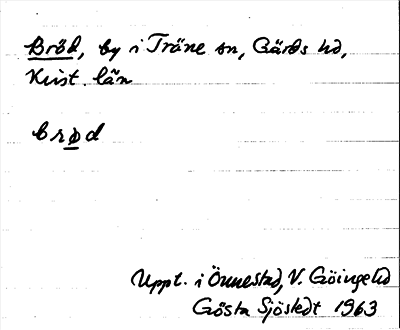 Bröd, by i Träne sn, Gärds hd,
Krist. län
brød
Uppt. i Önnestad, V. Göinge hd
Gösta Sjöstedt 1963